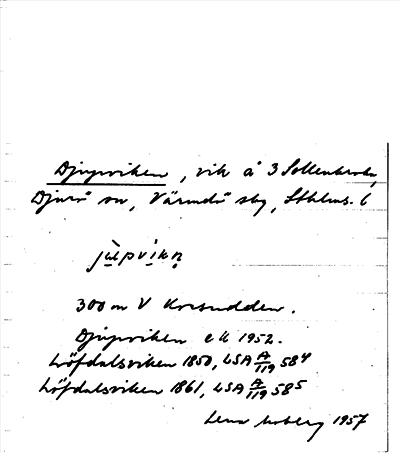 Djupviken, vik å 3 Sollenkroka,
Djurö sn, Värmdö sbg, Sthlms. l
jùpvìkn
300 m V Korsudden.
Djupviken ek 1952.
Löfdalsviken 1850, LSA A/119 58⁴
Löfdalsviken 1861, LSA A/119 58⁵
Lena Moberg 1957